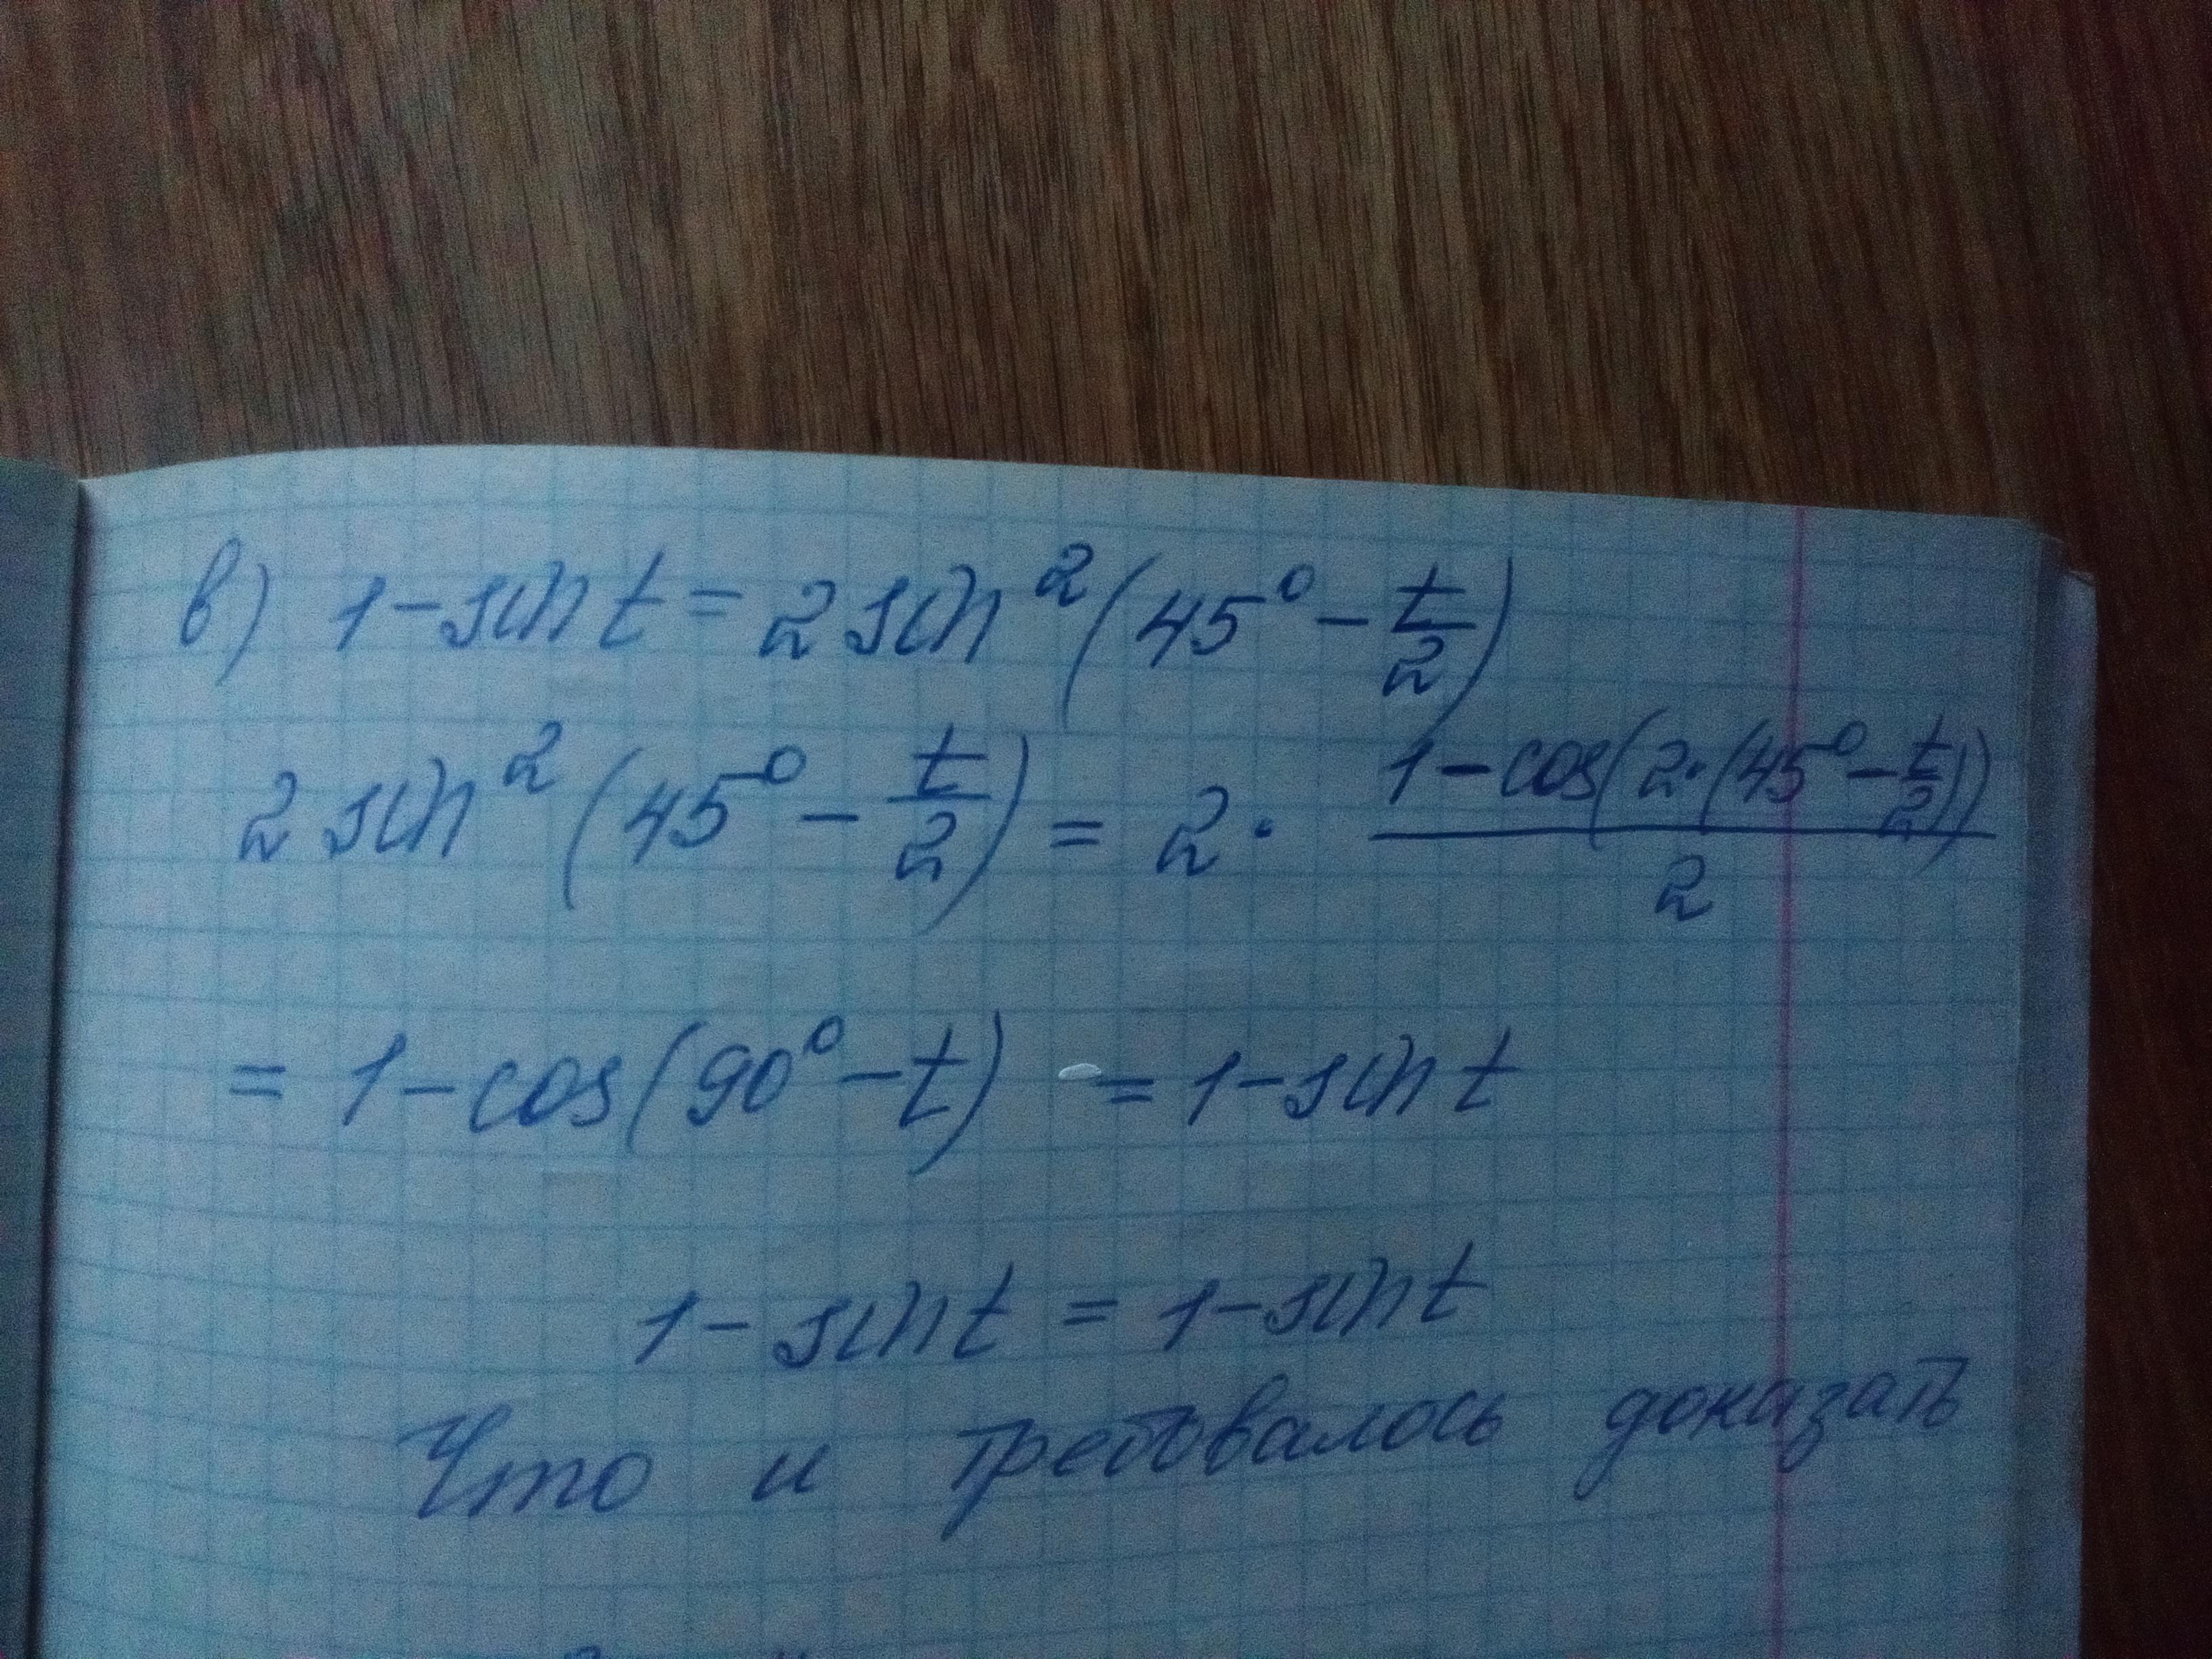 в) 1 - sin t = 2 sin² (45° - t/2)
2 sin² (45° - t/2) = 2 · (1 - cos(2 · (45° - t/2)))/2
= 1 - cos(90° - t) = 1 - sin t
1 - sin t = 1 - sin t
Что и требовалось доказать